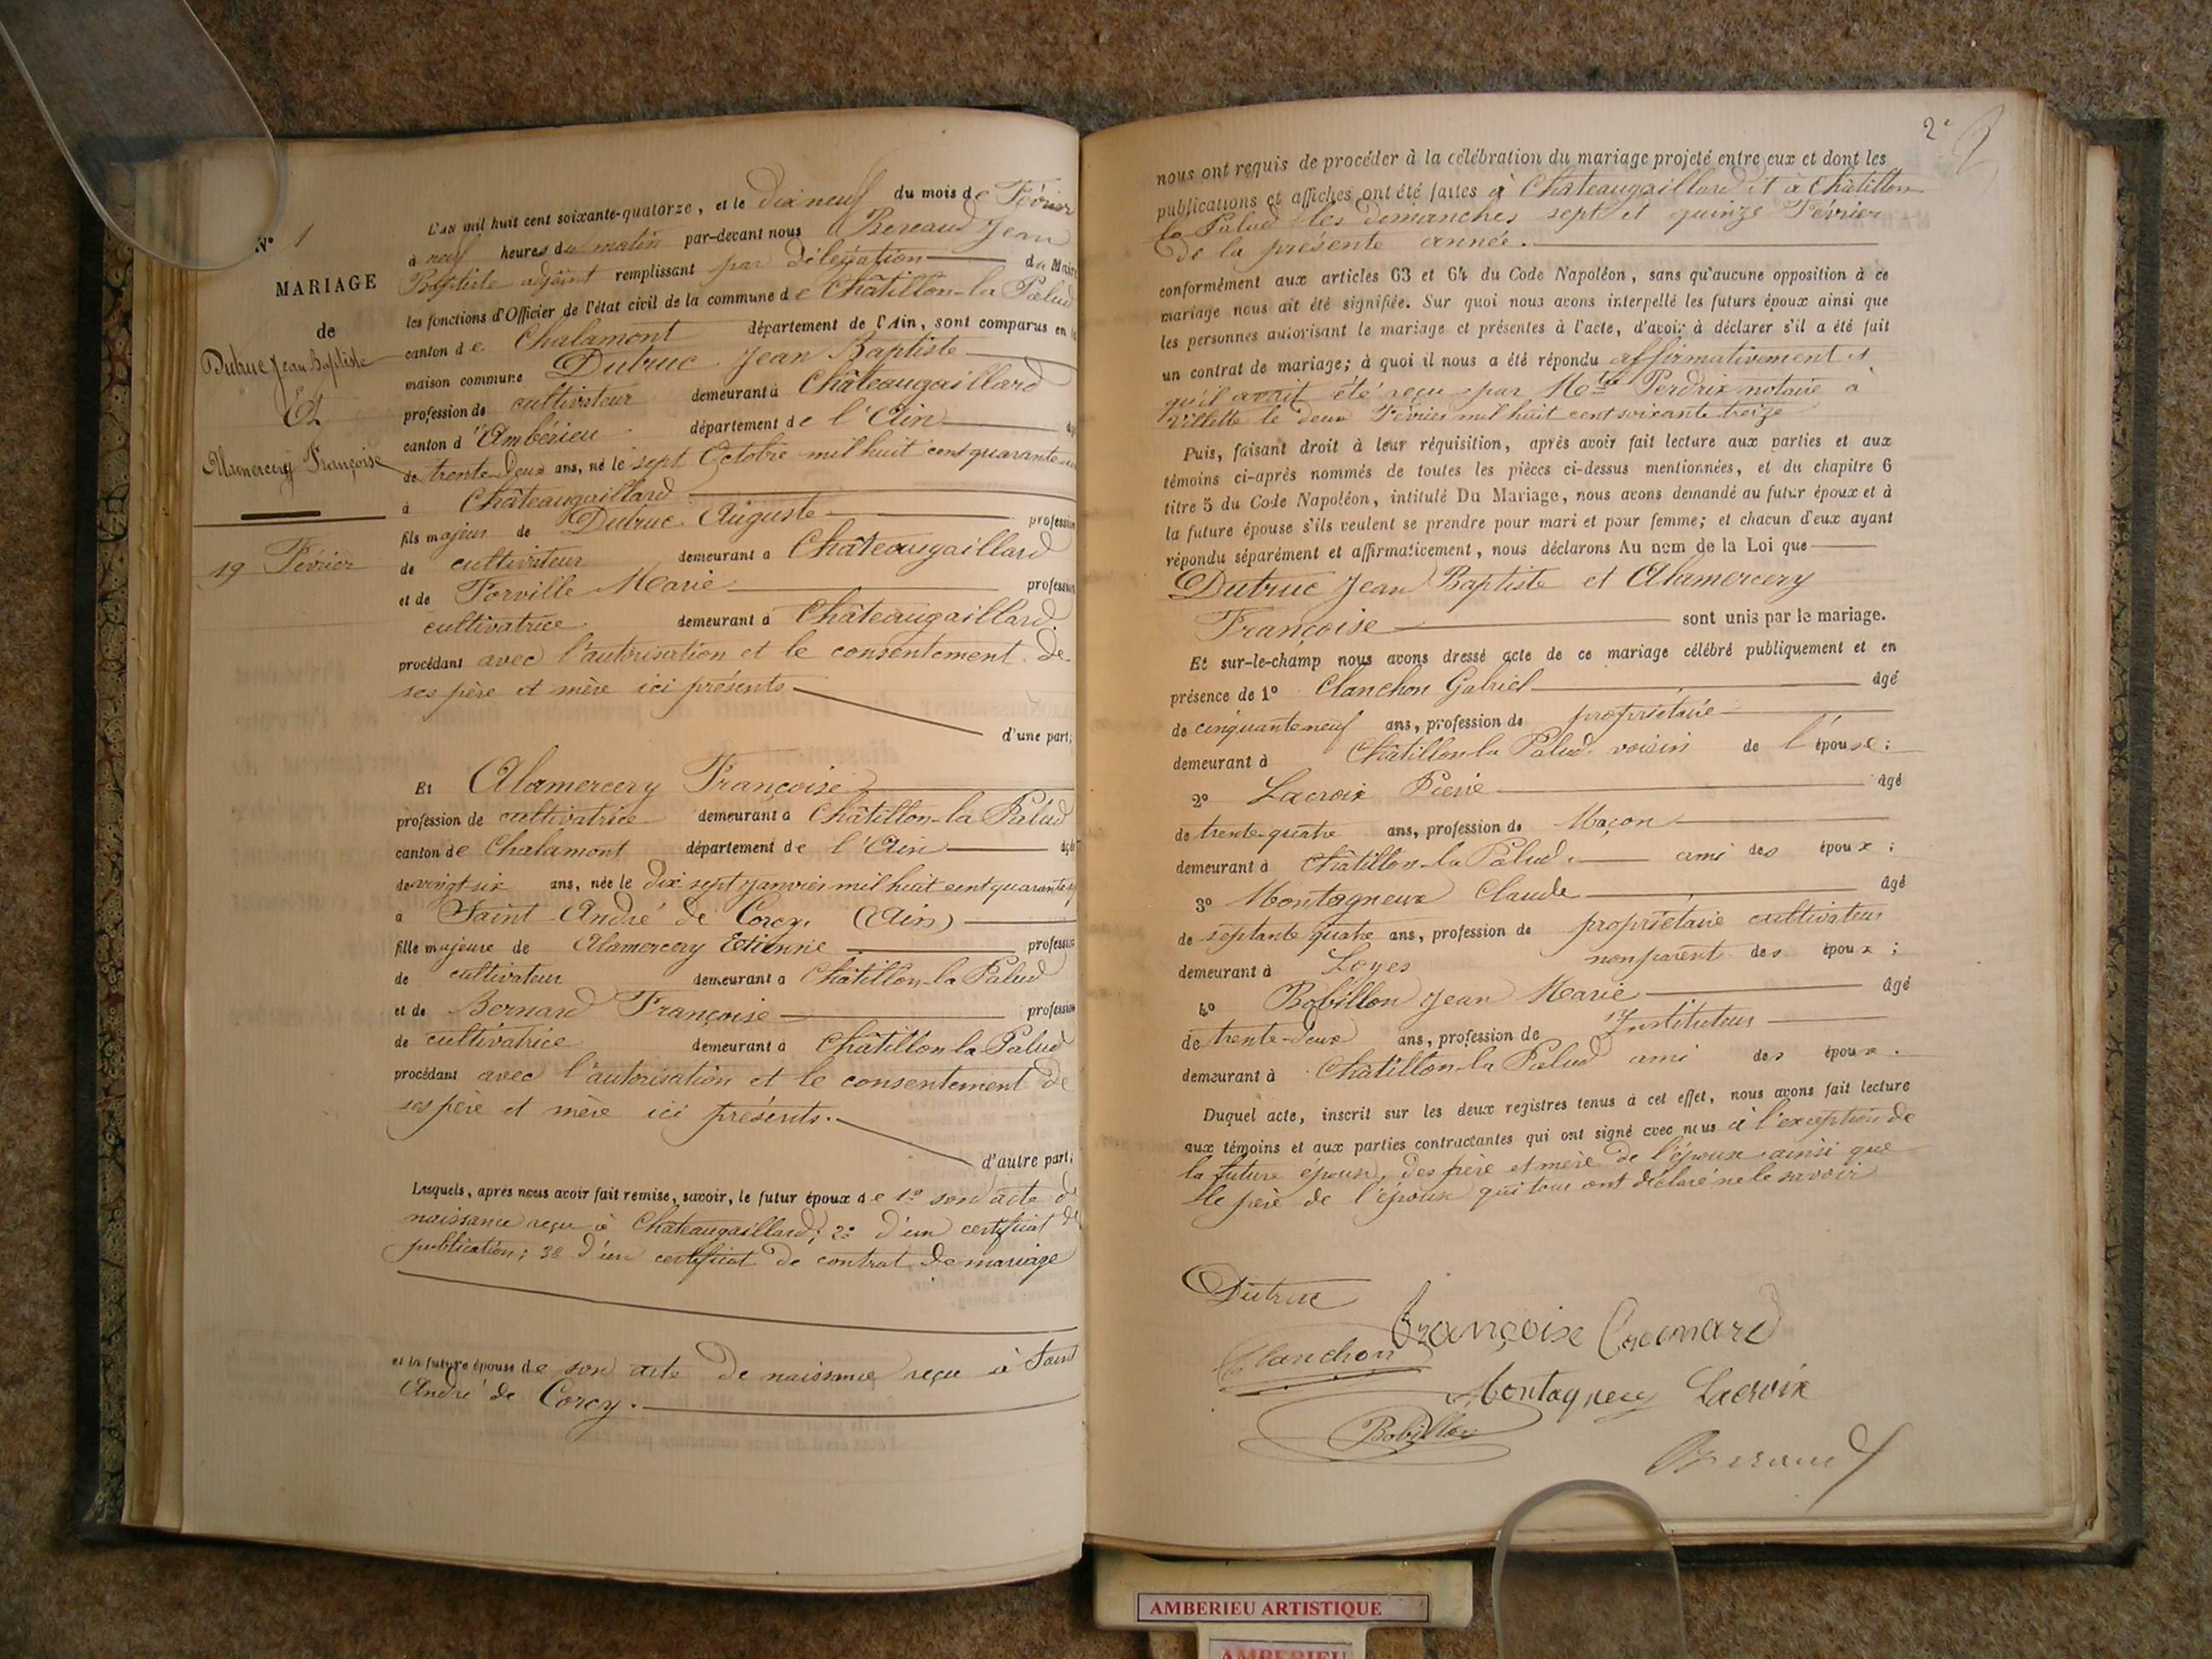 N° 1
MARIAGE
de
Dutruc Jean Baptiste
Et
Alamercery Françoise
19 Février
L'AN mil huit cent soixante-quatorze, et le dix neuf du mois de Février
à neuf heures du matin par-devant nous Beraud Jean
Baptiste adjoint remplissant par délégation du Maire
les fonctions d'Officier de l'état civil de la commune de Châtillon-la Palud
canton de Chalamont département de l'Ain, sont comparus en la
maison commune Dutruc Jean Baptiste
profession de cultivateur demeurant à Châteaugaillard
canton d'Ambérieu département de l'Ain
de trente-deux ans, né le sept Octobre mil huit cent quarante un
à Châteaugaillard
fils majeur de Dutruc Auguste profession
de cultivateur demeurant à Châteaugaillard
et de Forville Marie profession
cultivatrice demeurant à Châteaugaillard
procédant avec l'autorisation et le consentement de
ses père et mère ici présents
d'une part;
Et Alamercery Françoise
profession de cultivatrice demeurant à Châtillon-la Palud
canton de Chalamont département de l'Ain âgée
de vingt-six ans, née le dix sept Janvier mil huit cent quarante
à Saint-André de Corcy (Ain)
fille majeure de Alamercery Etienne profession
de cultivateur demeurant à Châtillon-la Palud
et de Bernard Françoise profession
de cultivatrice demeurant à Châtillon la Palud
procédant avec l'autorisation et le consentement de
ses père et mère ici présents.
d'autre part;
Lesquels, après nous avoir fait remise, savoir, le futur époux de 1° son acte de
naissance reçu à Châteaugaillard; 2° d'un certificat de
publication; 3° d'un certificat de contrat de mariage
et la future épouse de son acte de naissance reçu à Saint
André de Corcy.
2e
nous ont requis de procéder à la célébration du mariage projeté entre eux et dont les
publications et affiches ont été faites à Châteaugaillard et à Châtillon
la Palud les dimanches sept et quinze Février
de la présente année.
conformément aux articles 63 et 64 du Code Napoléon, sans qu'aucune opposition à ce
mariage nous ait été signifiée. Sur quoi nous avons interpellé les futurs époux ainsi que
les personnes autorisant le mariage et présentes à l'acte, d'avoir à déclarer s'il a été fait
un contrat de mariage; à quoi il nous a été répondu affirmativement et
qu'il avait été reçu par Me Perdrix notaire à
Villette le deux Février mil huit cent soixante treize
Puis, faisant droit à leur réquisition, après avoir fait lecture aux parties et aux
témoins ci-après nommés de toutes les pièces ci-dessus mentionnées, et du chapitre 6
titre 5 du Code Napoléon, intitulé Du Mariage, nous avons demandé au futur époux et à
la future épouse s'ils veulent se prendre pour mari et pour femme; et chacun d'eux ayant
répondu séparément et affirmativement, nous déclarons Au nom de la Loi que
Dutruc Jean Baptiste et Alamercery
Françoise sont unis par le mariage.
Et sur-le-champ nous avons dressé acte de ce mariage célébré publiquement et en
présence de 1° Clanchon Gabriel âgé
de cinquante neuf ans, profession de propriétaire
demeurant à Châtillon la Palud voisin de l'épouse;
2° Lacroix Pierre âgé
de trente-quatre ans, profession de Maçon
demeurant à Châtillon-la Palud. ami des époux;
3° Montagneux Claude âgé
de septante quatre ans, profession de propriétaire cultivateur
demeurant à Loyes non parent des époux;
4° Bobillon Jean Marie âgé
de trente-deux ans, profession de Instituteur
demeurant à Châtillon-la Palud ami des époux.
Duquel acte, inscrit sur les deux registres tenus à cet effet, nous avons fait lecture
aux témoins et aux parties contractantes qui ont signé avec nous à l'exception de
la future épouse, des père et mère de l'époux ainsi que
le père de l'épouse qui tous ont déclaré ne le savoir
Dutruc
Françoise
Clanchon
Montagneux Lacroix
Bobillon
Beraud
AMBERIEU ARTISTIQUE
AMBERIEU